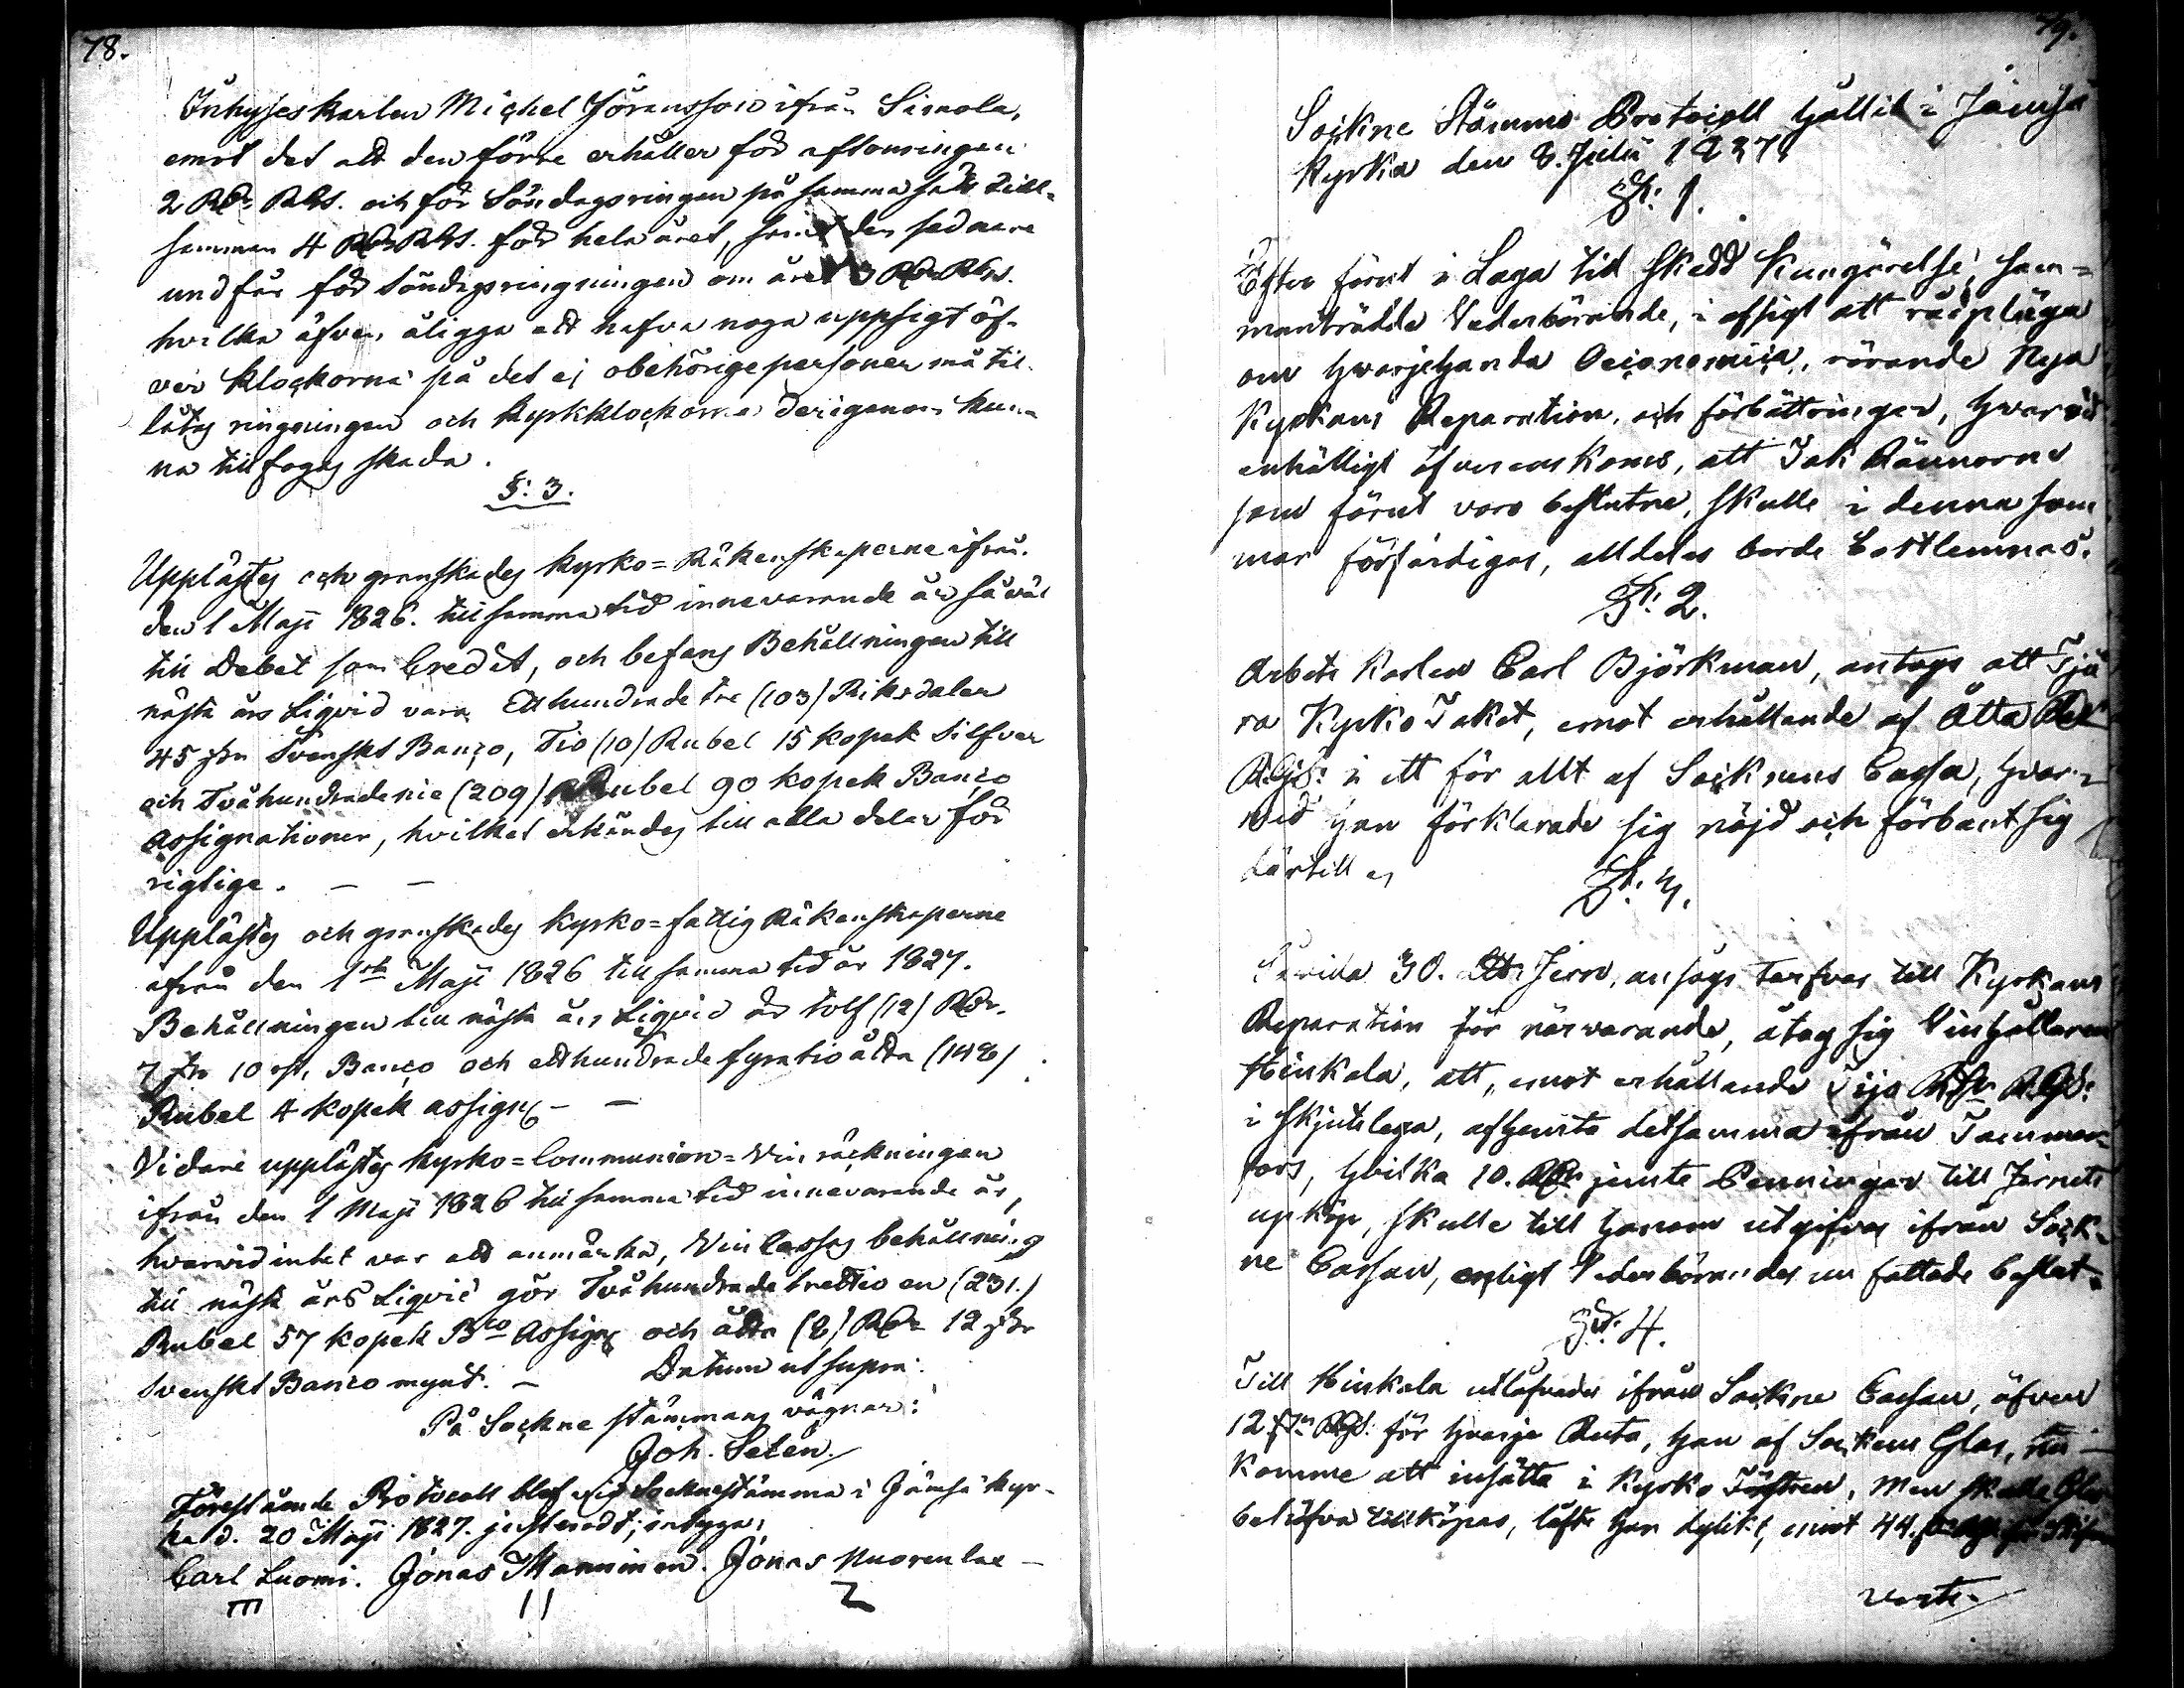 78.
Inhyseskarlen Michel Jöransson ifrån Simola,
emot det att den förre erhåller för aftonringen
2 RDr RGS. och för Söndagsringen på samma sätt till-
samman 4 RDr RGS. för hela året, samt den sednare
undfår för Söndagsringningen om året 3 RDr RGS.
hvilka äfven åligga att hafva noga uppsigt öf-
ver Klockorna på det ej obehörige personer må til-
låtas ringningen och Kyrkklockorna derigenom kun-
na tillfogas skada.
§: 3.
Upplästes och granskades Kyrko=Räkenskaperne ifrån
den 1 Maji 1826. till samma tid innevarande år såväl
till Debet som Credit, och befans Behållningen till
nästa års Liqvid vara Etthundrade tre (103) Riksdaler
45 s:r Svenskt Banco, Tio (10) Rubel 15 kopek Silfver
och Tvåhundrade nie (209) Rubel 90 kopek Banco
Assignationer, hvilket erkändes till alla delar för
rigtige. — —
Upplästes och granskades Kyrko=fattig Räkenskaperne
ifrån den 1sta Maji 1826 till samma tid år 1827.
Behållningen till nästa års Liqvid är tolf (12) RDr.
7 s:r 10 rst. Banco och etthundrade fyratio åtta (148)
Rubel 4 kopek assign. — —
Vidare upplästes Kyrko=Communion=Vinräckningen
ifrån den 1 Maji 1826 till samma tid innevarande år,
hvarvid intet var att anmärka, Vin Cassas behållning
till nästa års Liqvid gör Tvåhundrade trettio en (231.)
Rubel 57 kopek Bco Assign. och åtta (8) RDr 12 s:r
Svenskt Banco mynt. — Datum ut supra.
På Sockne stämmans vägnar:
Joh. Selén.
Förestående Protocoll blef vid Sockenstämma i Jämsä Kyr-
ka d. 20 Maji 1827. justeradt; intyga,
Carl Luomi. Jonas Manninen. Jonas Nuoren
79.
Sockne Stämmo Protocoll hållit i Jämsä
Kyrka den 8. Julii 1827.
§: 1.
Efter förut i Laga tid skedd Kungörelse, sam-
manträdde Vederbörande, i afsigt att rådpläga
om hvarjehanda Oeconomica, rörande Nya
Kyrkans Reparation, och förbättringar, hvarvid
enhälligt öfverenskoms, att Tak Rännorne
som förut voro beslutne, skulle i denna som
mar förfärdigas, alldeles borde bortlemnas.
§: 2.
Arbets Karlen Carl Björkman, antogs att Tjä
ra Kyrko Taket, emot erhållande af Åtta RDr
RGS: i ett för allt af Socknens Cassa, hvar-
med han förklarade sig nöjd och förbant sig
därtill
§: 3.
30. Jern, ansågs tarfvas till Kyrkans
Reparation för närvarande, åtog sig Vinhållaren
Hinkala, att, emot erhållande Tijo RDr RGS:
i skjutslega, afhemta detsamma ifrån Tammer-
fors, hvilka 10. RDr jemte Penningar till Järnets
upköp, skulle till honom utgifvas ifrån Sock-
ne Cassan, enligt Vederbörandes nu fattade beslut.
§: 4.
Till Hinkala utlofvades ifrån Sockne Cassan, äfven
12 s:r RGS. för hvarje Ruta, han af Sockens Glas, nu
komme att insätta i Kyrko Fönstren, Men skulle Glas
behöfva tillköpas, löfte han dylikt, emot 44.
verte